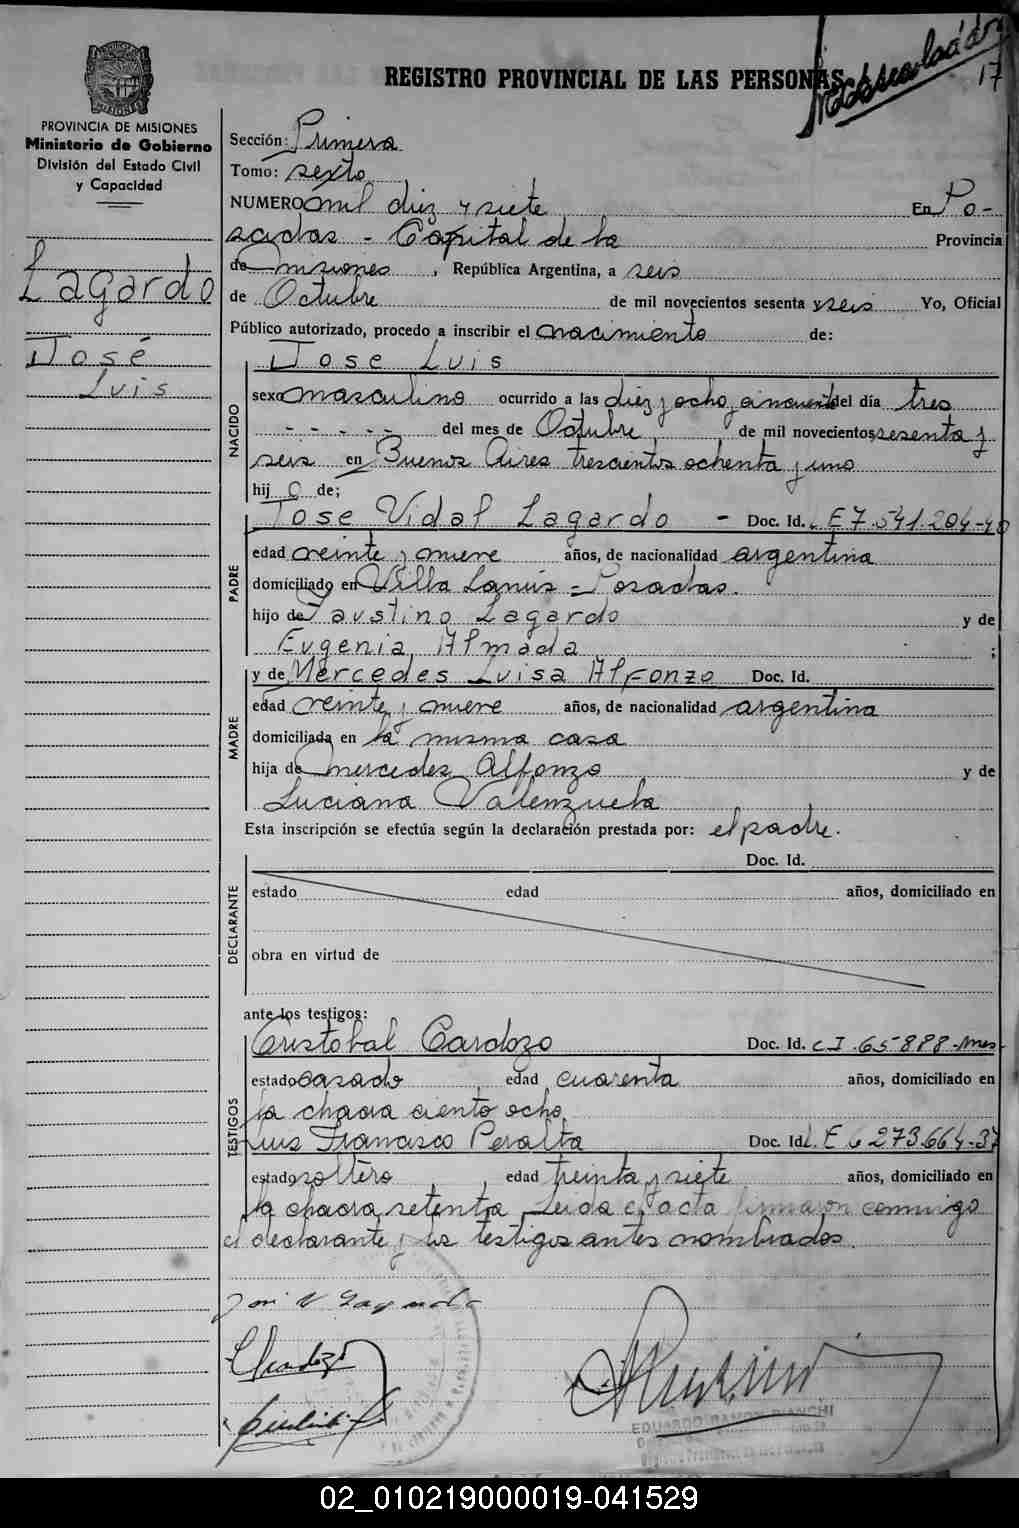 17
REGISTRO PROVINCIAL DE LAS PERSONAS
PROVINCIA DE MISIONES
Ministerio de Gobierno
División del Estado Civil
y Capacidad
Lagardo
José
Luis
Sección: Primera
Tomo: sexto
NUMERO mil diez y siete En Po-
sadas - Capital de la Provincia
de misiones , República Argentina, a seis
de Octubre de mil novecientos sesenta y seis Yo, Oficial
Público autorizado, procedo a inscribir el nacimiento de:
NACIDO
Jose Luis
sexo masculino ocurrido a las diez y ocho y cincuenta del día tres
- - - - - del mes de Octubre de mil novecientos sesenta y
seis en Buenos Aires trescientos ochenta y uno
hijo de;
PADRE
Jose Vidal Lagardo - Doc. Id. L E 7.541.204-40
edad veinte y nueve años, de nacionalidad argentina
domiciliado en Villa Lanús = Posadas.
hijo de Faustino Lagardo y de
Eugenia Almada ;
MADRE
y de Mercedes Luisa Alfonzo Doc. Id.
edad veinte y nueve años, de nacionalidad argentina
domiciliada en la misma casa
hija de mercedes Alfonzo y de
Luciana Valenzuela
Esta inscripción se efectúa según la declaración prestada por: el padre.
DECLARANTE
Doc. Id.
estado edad años, domiciliado en
obra en virtud de
ante los testigos:
TESTIGOS
Cristobal Cardozo Doc. Id. C I .65888-Mnes-
estado casado , edad cuarenta años, domiciliado en
la chacra ciento ocho
Luis Francisco Peralta Doc. Id. L. E 6 273.664-37
estado soltero , edad treinta y siete años, domiciliado en
la chacra setenta Leida el acta firmaron conmigo
el declarante y los testigos antes nombrados.
EDUARDO RAMON BIANCHI
02_010219000019-041529